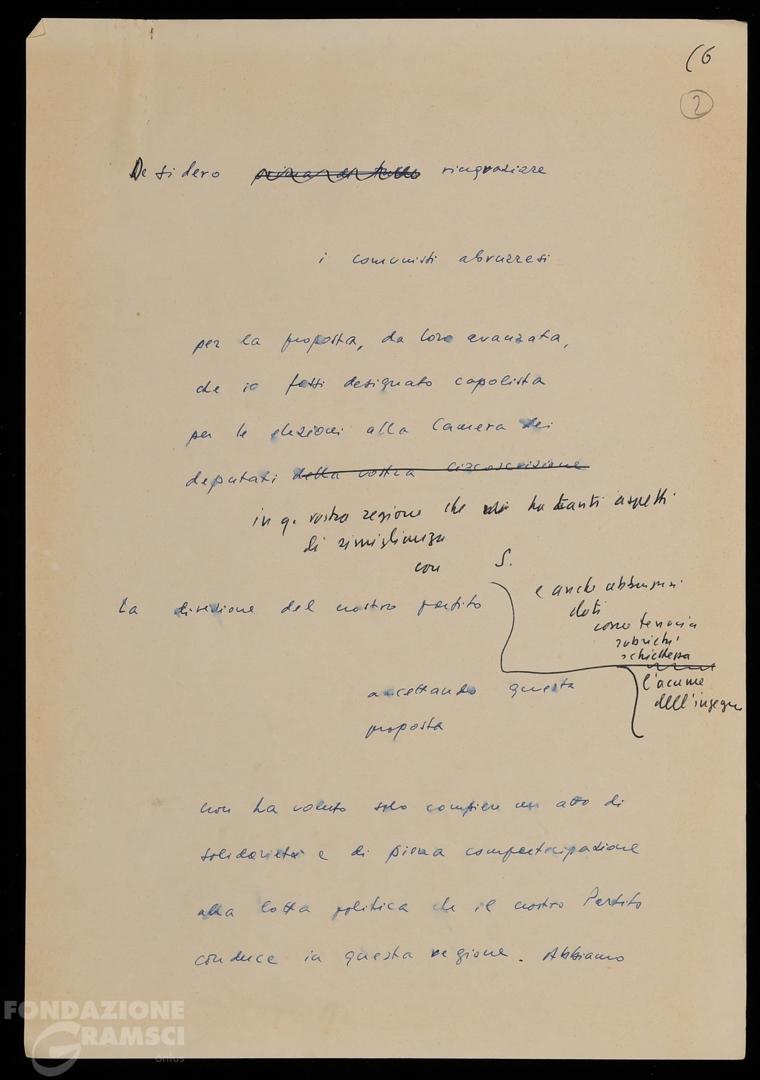 (6
2
Desidero prima di tutto ringraziare
i comunisti abruzzesi
per la proposta, da loro avanzata,
che io fossi designato capolista
per le elezioni alla Camera dei
deputati della vostra circoscrizione
in q. vostra regione che ha tanti aspetti
di simiglianza
con S.
e anche
doti
come tenacia
sobrietà
schiettezza
l'acume
dell'ingegno
La direzione del nostro partito
accettando questa
proposta
non ha voluto solo compiere un atto di
solidarietà e di piena compartecipazione
alla lotta politica che il nostro Partito
conduce in questa regione. Abbiamo
FONDAZIONE
GRAMSCI
onlus